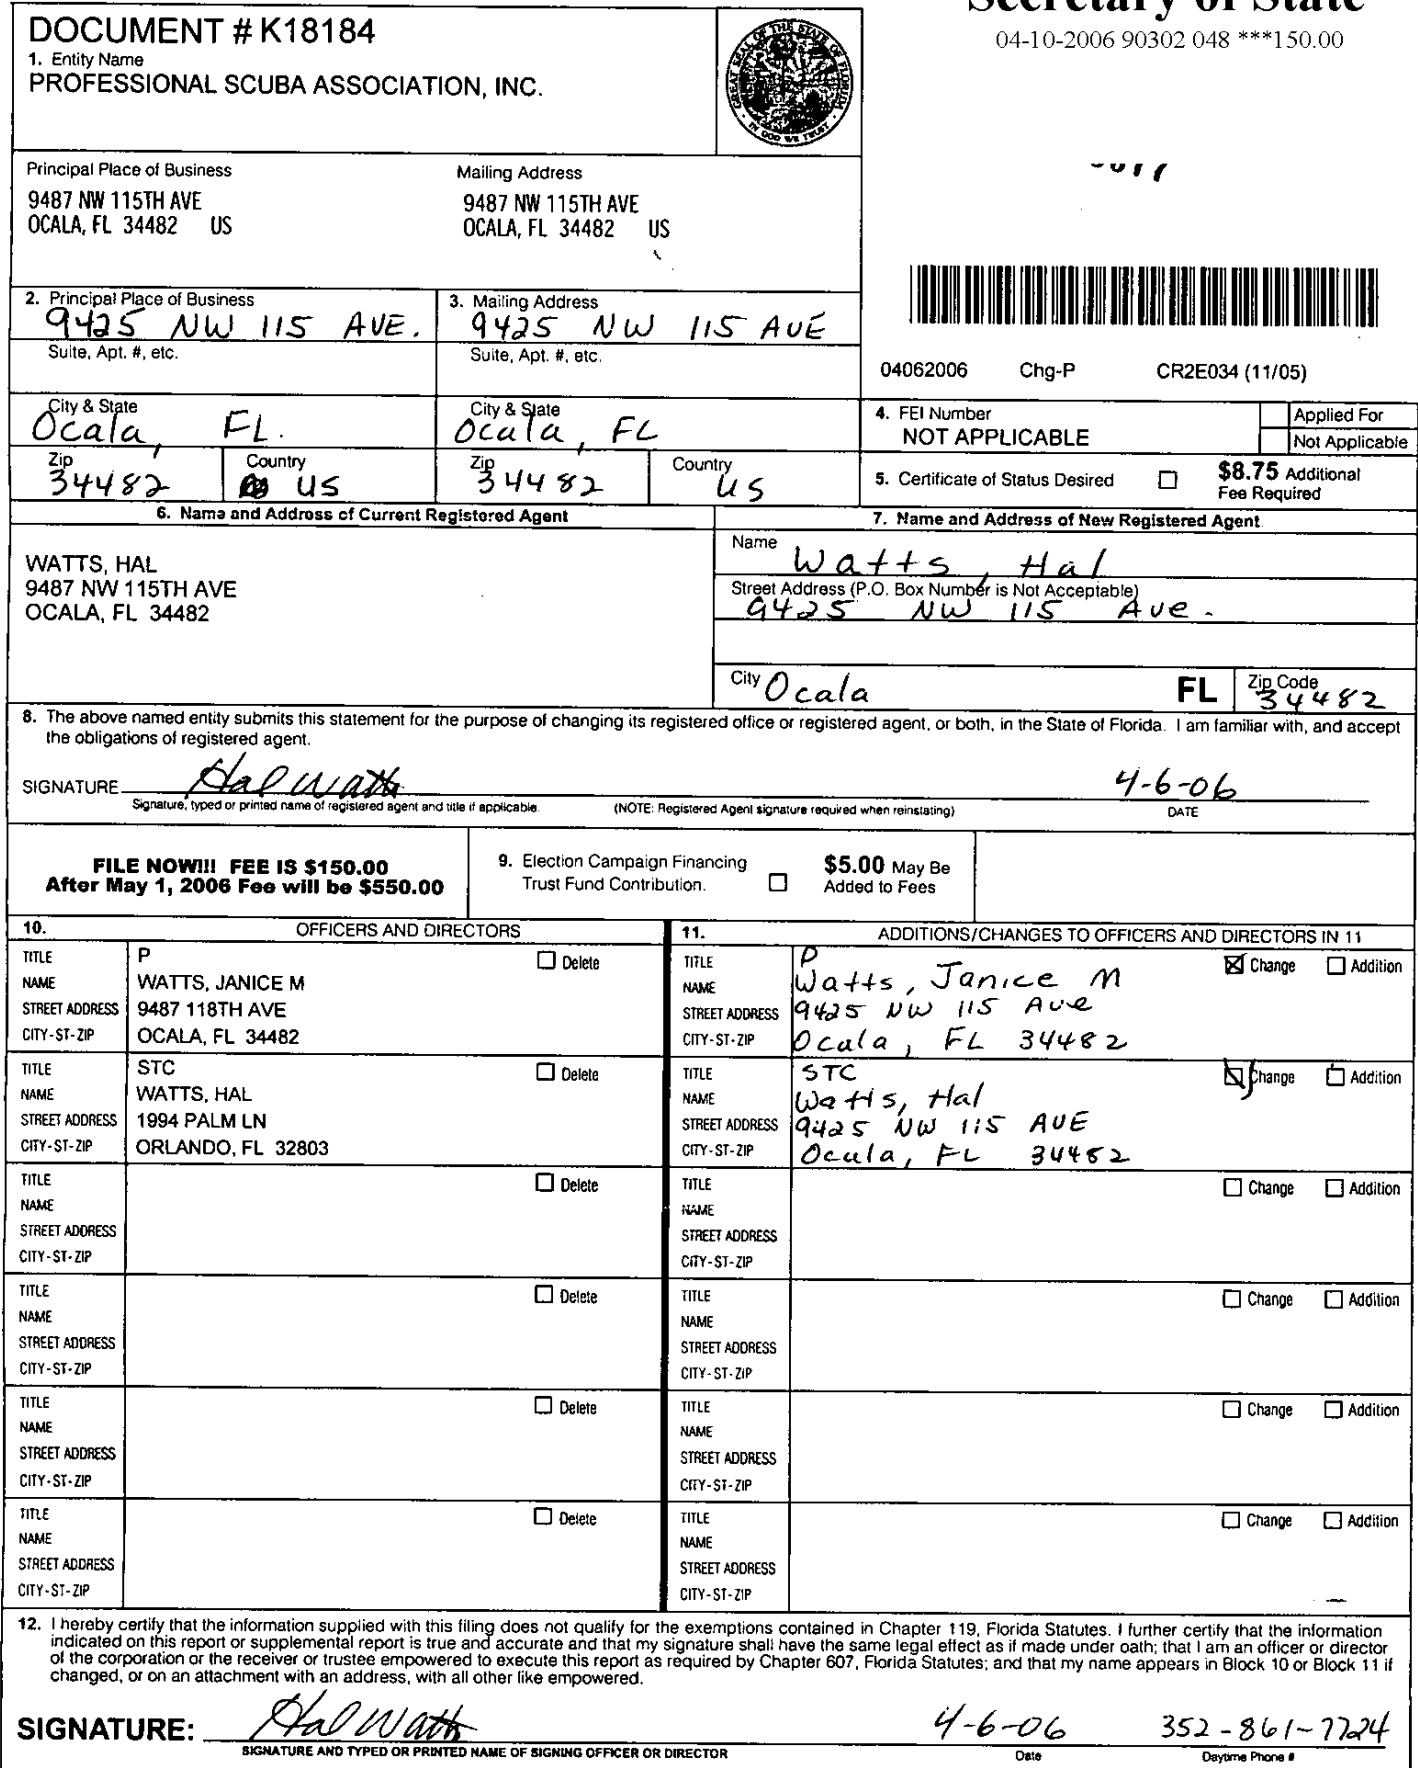 Secretary of State
04-10-2006 90302 048 ***150.00
DOCUMENT # K18184
1. Entity Name
PROFESSIONAL SCUBA ASSOCIATION, INC.
GREAT SEAL OF THE STATE OF FLORIDA
IN GOD WE TRUST
Principal Place of Business
9487 NW 115TH AVE
OCALA, FL 34482 US
Mailing Address
9487 NW 115TH AVE
OCALA, FL 34482 US
2. Principal Place of Business
9425 NW 115 AVE.
Suite, Apt. #, etc.
City & State
Ocala, FL.
Zip
34482
Country
US
3. Mailing Address
9425 NW 115 AVE
Suite, Apt. #, etc.
City & State
Ocala, FL
Zip
34482
Country
US
04062006 Chg-P CR2E034 (11/05)
4. FEI Number
NOT APPLICABLE
Applied For
Not Applicable
5. Certificate of Status Desired
$8.75 Additional
Fee Required
6. Name and Address of Current Registered Agent
WATTS, HAL
9487 NW 115TH AVE
OCALA, FL 34482
7. Name and Address of New Registered Agent
Name
Watts, Hal
Street Address (P.O. Box Number is Not Acceptable)
9425 NW 115 Ave.
City Ocala FL Zip Code
34482
8. The above named entity submits this statement for the purpose of changing its registered office or registered agent, or both, in the State of Florida. I am familiar with, and accept
the obligations of registered agent.
SIGNATURE Hal Watts 4-6-06
Signature, typed or printed name of registered agent and title if applicable. (NOTE: Registered Agent signature required when reinstating) DATE
FILE NOW!!! FEE IS $150.00
After May 1, 2006 Fee will be $550.00
9. Election Campaign Financing
Trust Fund Contribution.
$5.00 May Be
Added to Fees
10. OFFICERS AND DIRECTORS
TITLE P Delete
NAME WATTS, JANICE M
STREET ADDRESS 9487 118TH AVE
CITY-ST-ZIP OCALA, FL 34482
TITLE STC Delete
NAME WATTS, HAL
STREET ADDRESS 1994 PALM LN
CITY-ST-ZIP ORLANDO, FL 32803
TITLE Delete
NAME
STREET ADDRESS
CITY-ST-ZIP
TITLE Delete
NAME
STREET ADDRESS
CITY-ST-ZIP
TITLE Delete
NAME
STREET ADDRESS
CITY-ST-ZIP
TITLE Delete
NAME
STREET ADDRESS
CITY-ST-ZIP
11. ADDITIONS/CHANGES TO OFFICERS AND DIRECTORS IN 11
TITLE P Change Addition
NAME Watts, Janice M
STREET ADDRESS 9425 NW 115 Ave
CITY-ST-ZIP Ocala, FL 34482
TITLE STC Change Addition
NAME Watts, Hal
STREET ADDRESS 9425 NW 115 AVE
CITY-ST-ZIP Ocala, FL 34482
TITLE Change Addition
NAME
STREET ADDRESS
CITY-ST-ZIP
TITLE Change Addition
NAME
STREET ADDRESS
CITY-ST-ZIP
TITLE Change Addition
NAME
STREET ADDRESS
CITY-ST-ZIP
TITLE Change Addition
NAME
STREET ADDRESS
CITY-ST-ZIP
12. I hereby certify that the information supplied with this filing does not qualify for the exemptions contained in Chapter 119, Florida Statutes. I further certify that the information
indicated on this report or supplemental report is true and accurate and that my signature shall have the same legal effect as if made under oath; that I am an officer or director
of the corporation or the receiver or trustee empowered to execute this report as required by Chapter 607, Florida Statutes; and that my name appears in Block 10 or Block 11 if
changed, or on an attachment with an address, with all other like empowered.
SIGNATURE: Hal Watts 4-6-06 352-861-7724
SIGNATURE AND TYPED OR PRINTED NAME OF SIGNING OFFICER OR DIRECTOR Date Daytime Phone #